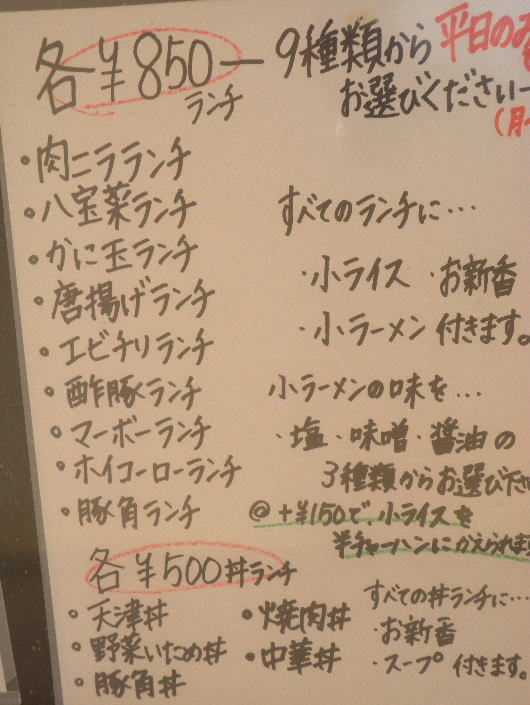 各¥850ー 9種類から 平日のみ
ランチ お選びくださいー
(月
・肉ニラランチ
・八宝菜ランチ
すべてのランチに…
・かに玉ランチ
・小ライス ・お新香
・唐揚げランチ
・小ラーメン 付きます。
・エビチリランチ
・酢豚ランチ
小ラーメンの味を…
・マーボーランチ
・塩・味噌・醤油の
・ホイコーローランチ
3種類からお選び下さ
・豚角ランチ
@ +¥150で小ライスを
半チャーハンにかえられます
各¥500丼ランチ
すべての丼ランチに…
・天津丼 ・焼肉丼
・お新香
・野菜いため丼 ・中華丼
・スープ 付きます。
・豚角丼